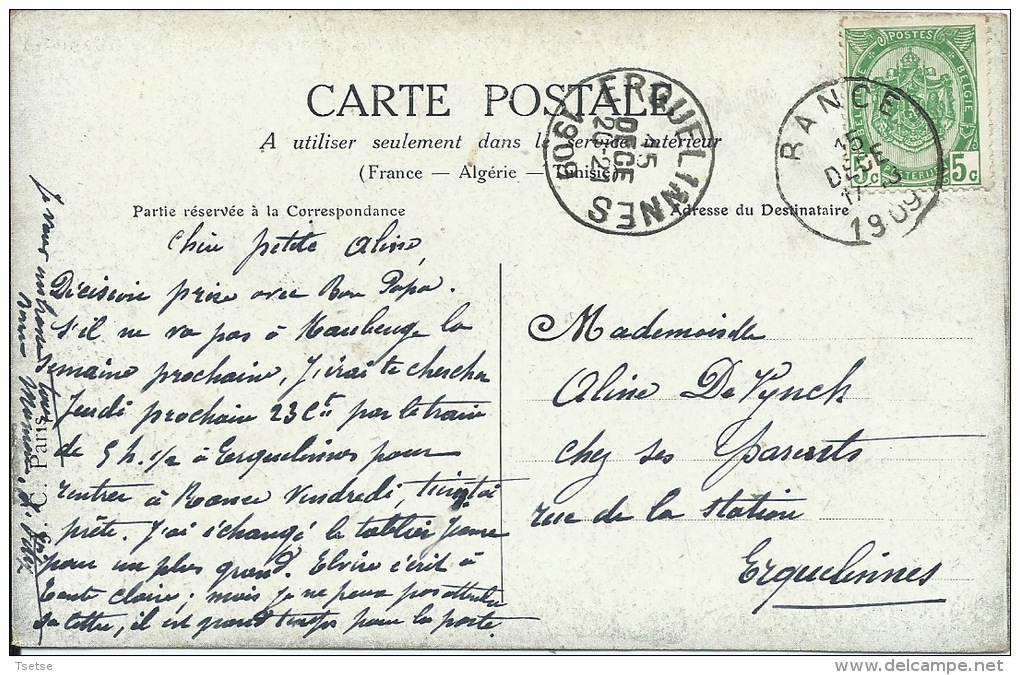 CARTE POSTALE
A utiliser seulement dans le service intérieur
(France — Algérie — Tunisie)
Partie réservée à la Correspondance
Adresse du Destinataire
ERQUELINNES
15
DECE
20-21
1909
RANCE
15
DECE
17
1909
POSTES
BELGIQUE
BELGIE
5c
5c
Chère petite Aline,
Décision prise avec Bon Papa.
S'il ne va pas à Maubeuge la
semaine prochaine, j'irai te chercher
Jeudi prochain 23 Ct par le train
de 5 h. 1/2 à Erquelinnes pour
rentrer à Rance Vendredi, tiens toi
prête. J'ai échangé le tablier jaune
pour un plus grand. Elvire écrit à
Tante Claire; mais je ne peux pas attendre
sa lettre, il est grand temps pour la poste.
Je vous embrasse tous
C. Paris
Mademoiselle
Aline De Vynck
chez ses Parents
rue de la Station
Erquelinnes
Tsetse
www.delcampe.net